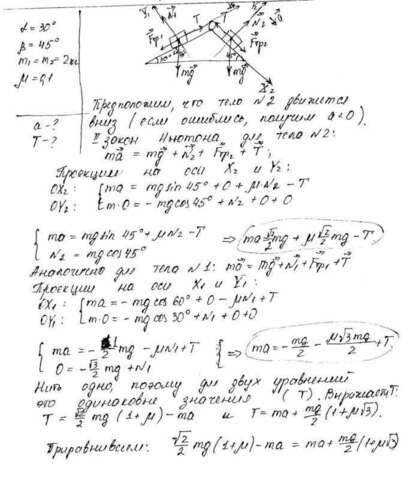 α = 30°
β = 45°
m₁ = m₂ = 2кг
μ = 0,1
a - ?
T - ?
Y₁ N₁ T T N₂ Y₂
Fтр₁ Fтр₂
mg mg
X₂
Предположим, что тело N2 движется
вниз (если ошиблись, получим a<0).
II закон Ньютона для тела N2:
ma = mg + N₂ + Fтр₂ + T;
Проекции на оси X₂ и Y₂:
OX₂: { ma = mg sin 45° + 0 + μN₂ - T
OY₂: { m·0 = - mg cos 45° + N₂ + 0 + 0
{ ma = mg sin 45° + μN₂ - T ⇒ ma = √2/2 mg + μ √2/2 mg - T
{ N₂ = mg cos 45°
Аналогично для тела N1: ma = mg + N₁ + Fтр₁ + T
Проекции на оси X₁ и Y₁:
OX₁: { ma = - mg cos 60° + 0 - μN₁ + T
OY₁: { m·0 = - mg cos 30° + N₁ + 0 + 0
{ ma = - 1/2 mg - μN₁ + T } ⇒ ma = - mg/2 - μ√3mg/2 + T.
{ 0 = - √3/2 mg + N₁
Нить одно, поэтому для двух уравнений
это одинаковые значения (T). Выражаем T:
T = √2/2 mg (1 + μ) - ma и T = ma + mg/2 (1 + μ√3).
Приравниваем: √2/2 mg (1 + μ) - ma = ma + mg/2 (1 + μ√3)